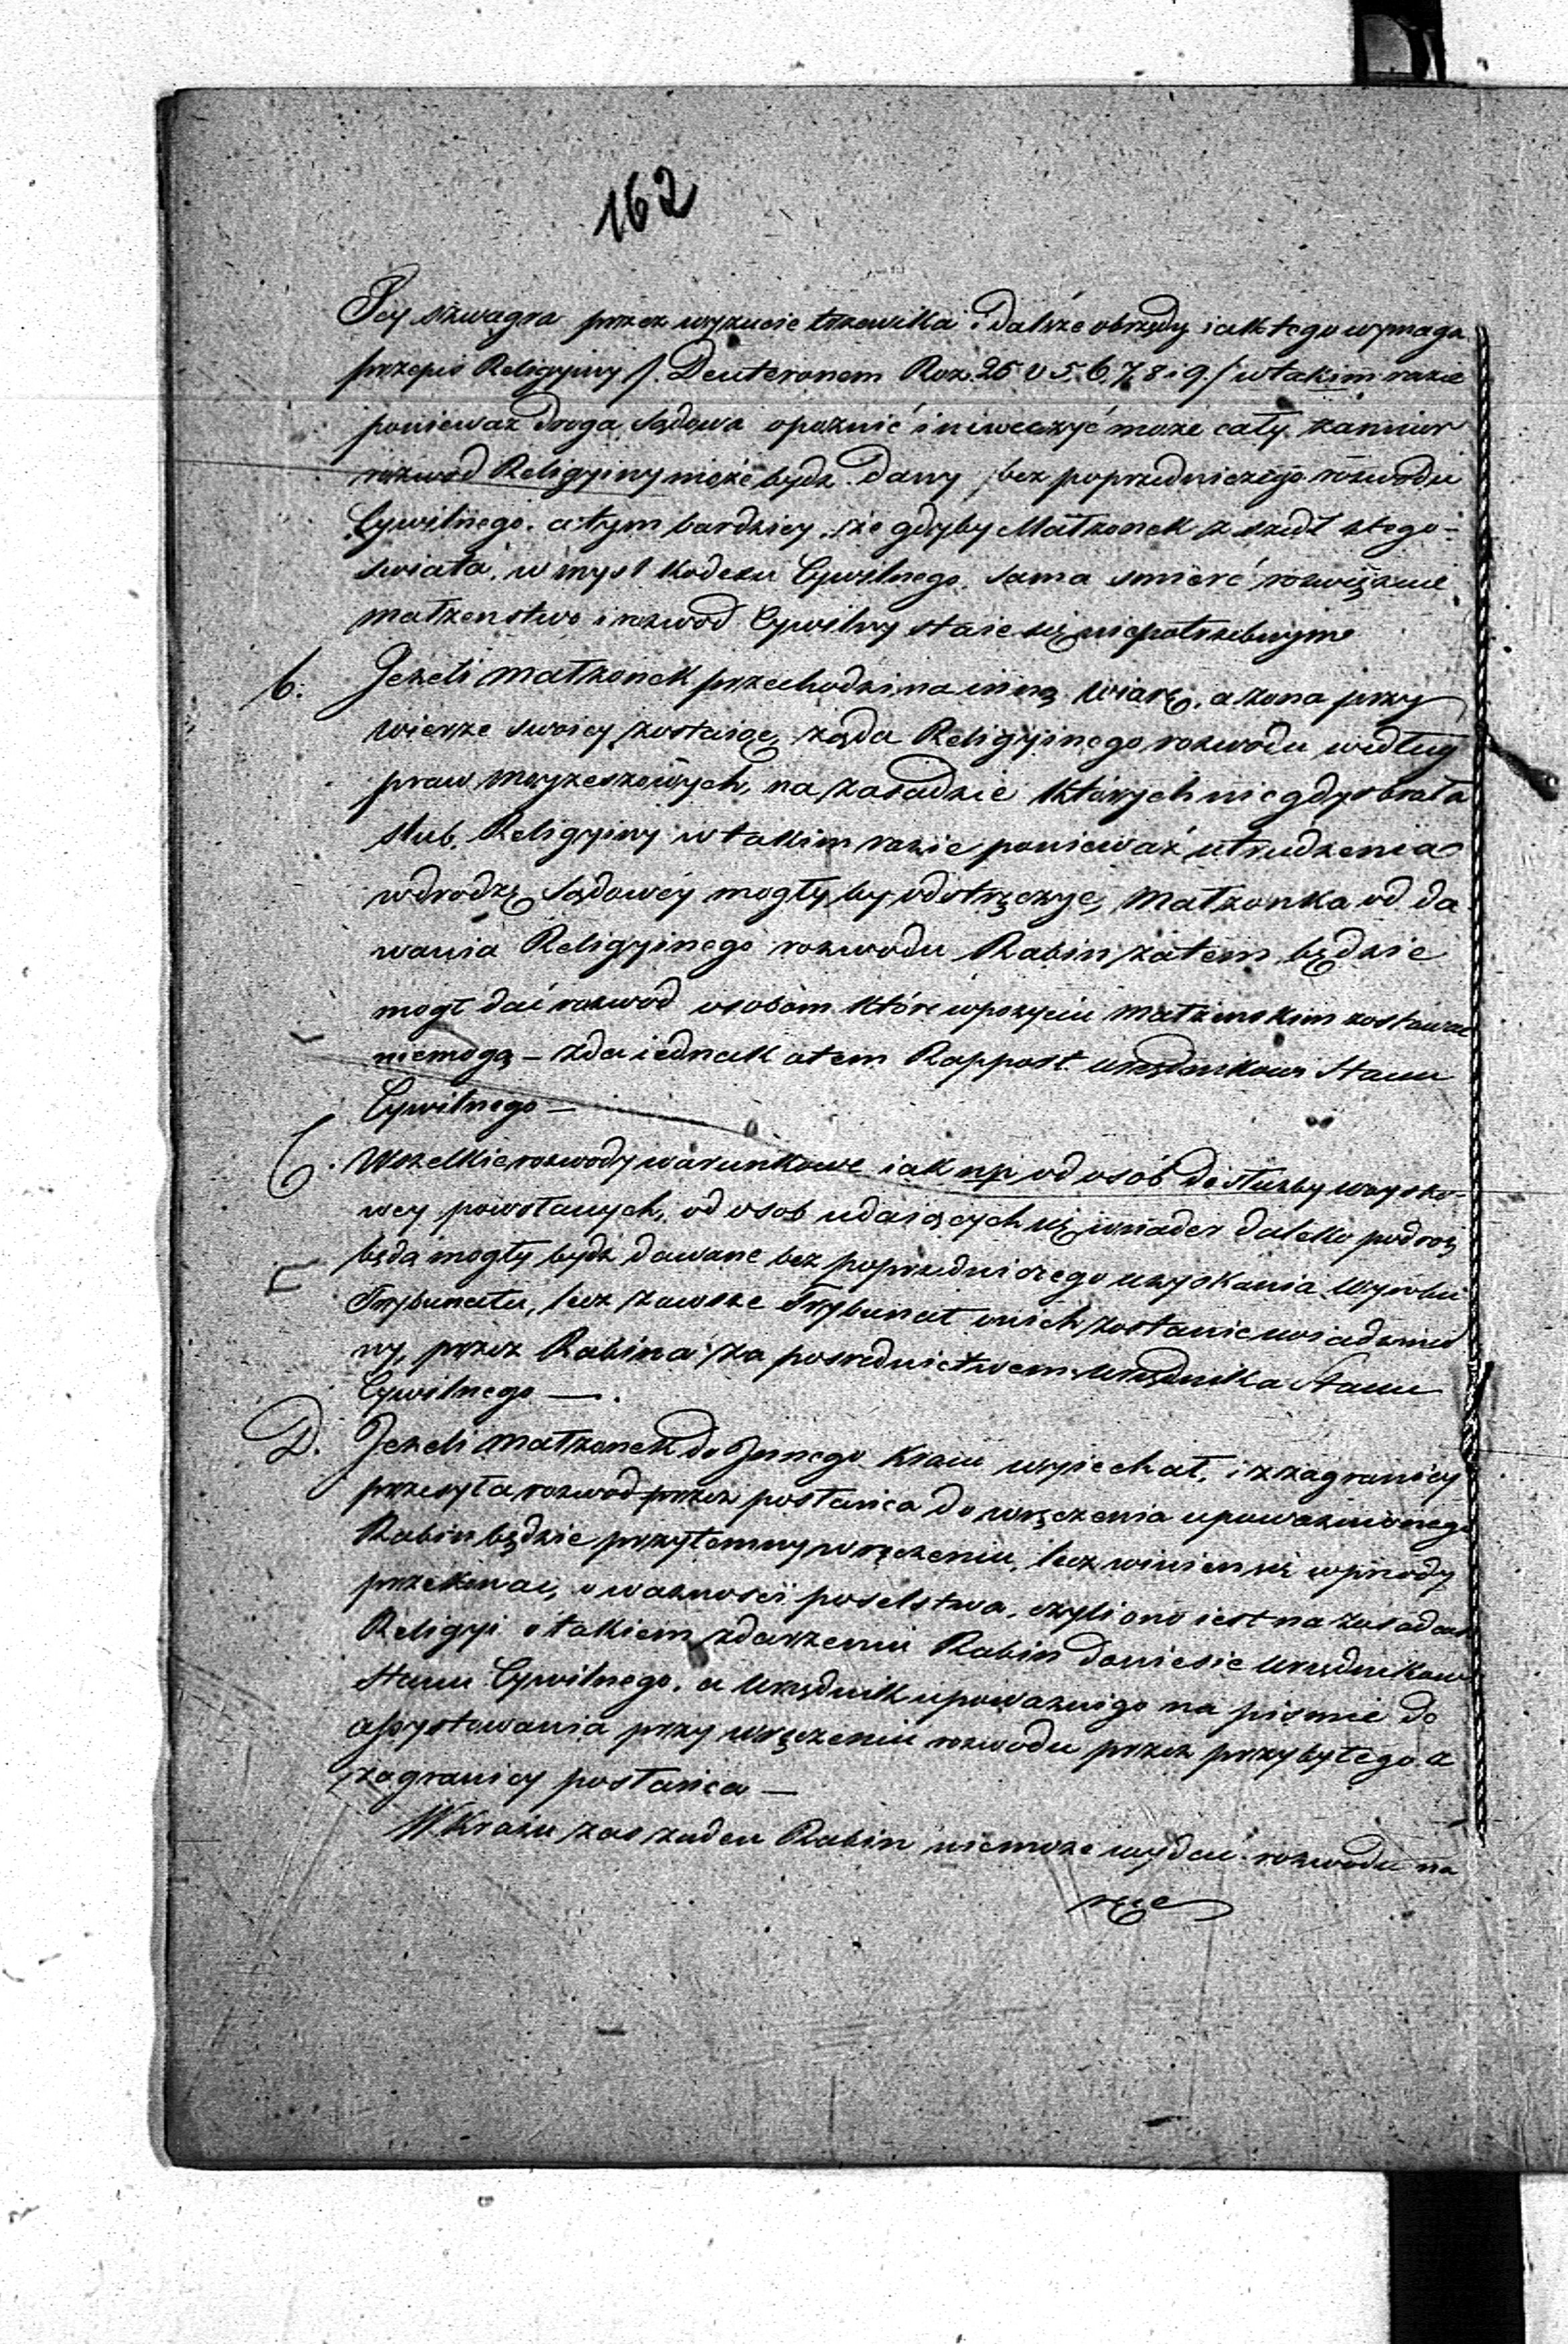 162
Jey szwagra przez wyzucie trzewika i dalsze obrzędy iak tego wymaga
przepis Religyiny /. Deuteronem Roz. 25 v 5. 6. 7. 8 i 9./ w takim razie
ponieważ droga Sądowa opoznić i niweczyć może cały zamiar
rozwod Religyiny może bydz dany bez poprzedniczego rozwodu
Cywilnego. a tym bardziey, że gdyby Małżonek z szedł z tego-
swiata, w mysl Kodexu Cywilnego. sama smierć rozwięzuie
małzenstwo i rozwod Cywilny staie się niepotrzebnym
b. Jezeli małzonek przechodzi na inną wiarę, a zona przy
wierze swoiey zostaiąc, ząda Religyinego rozwodu według
praw moyzeszowych, na zasadzie których niegdys brała
slub Religyiny w takim razie ponieważ utrudzenia
w drodze Sądowéy mogły by odstręczyc, Małzonka od da
wania Religyinego rozwodu Rabin zatem będzie
mogł dać rozwod osobom które w pozyciu małzenskim zostawac
niemogą – zda iednak o tem Rapport urzędnikowi Stanu
Cywilnego –
C. Wszelkie rozwody warunkowe iak np od osób do służby woysko-
wey powołanych, od osob udaiących się w nader daleką podroż
będą mogły bydź dawane bez poprzedniczego uzyskania Wyroku
Trybunału, lecz zawsze Trybunał o nich zostanie uwiadomio
ny, przez Rabina za posrednictwem Urzędnika Stanu
Cywilnego —.
D. Jezeli małzonek do Jnnego Kraiu wyiechał, i z zagranicy
przesyła rozwod przez posłańca do wręczenia upowaznionego
Rabin będzie przytomny wręczeniu, lecz winien się wprzody
przekonac, o waznosci poselstwa, czyli ono iest na zasadach
Religyi o takiem zdarzeniu Rabin doniesie Urzędnikowi
Stanu Cywilnego. a Urzędnik upowazni go na pismie do
assystowania przy wręczeniu rozwodu przez przybyłego z
zagranicy posłańca —
W Kraiu zas zaden Rabin niemoze wydać rozwodu na
ręce